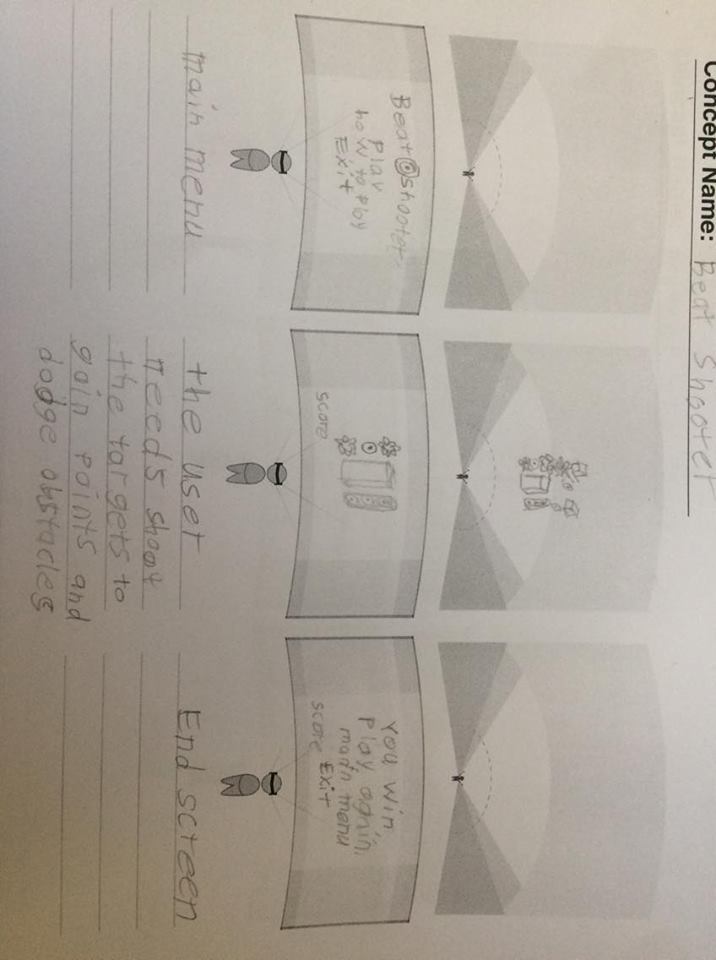 Concept Name: Beat Shooter
Beat shooter
play
how to play
Exit
main menu
score
the user
needs shoot
the targets to
gain points and
dodge obstacles
You win
play again
main menu
score Exit
End screen